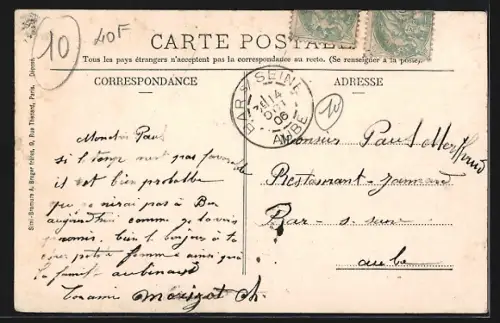 10
40F
CARTE POSTALE
Tous les pays étrangers n'acceptent pas la correspondance au recto. (Se renseigner à la poste).
CORRESPONDANCE
ADRESSE
BAR S/ SEINE
14
06
AUBE
10
Simi-Bromure A. Breger frères, 9, Rue Thénard, Paris. Déposé
Mon cher Paul
si le temps n'est pas favorable
il est bien probable
que je n'irai pas à Bar
aujourd'hui comme je l'avais
promis. bien le bonjour à ta
petite femme ainsi qu'à
la famille
Ton ami Morizot Ch.
Monsieur Paul
Restaurant
Bar-s-seine
aube